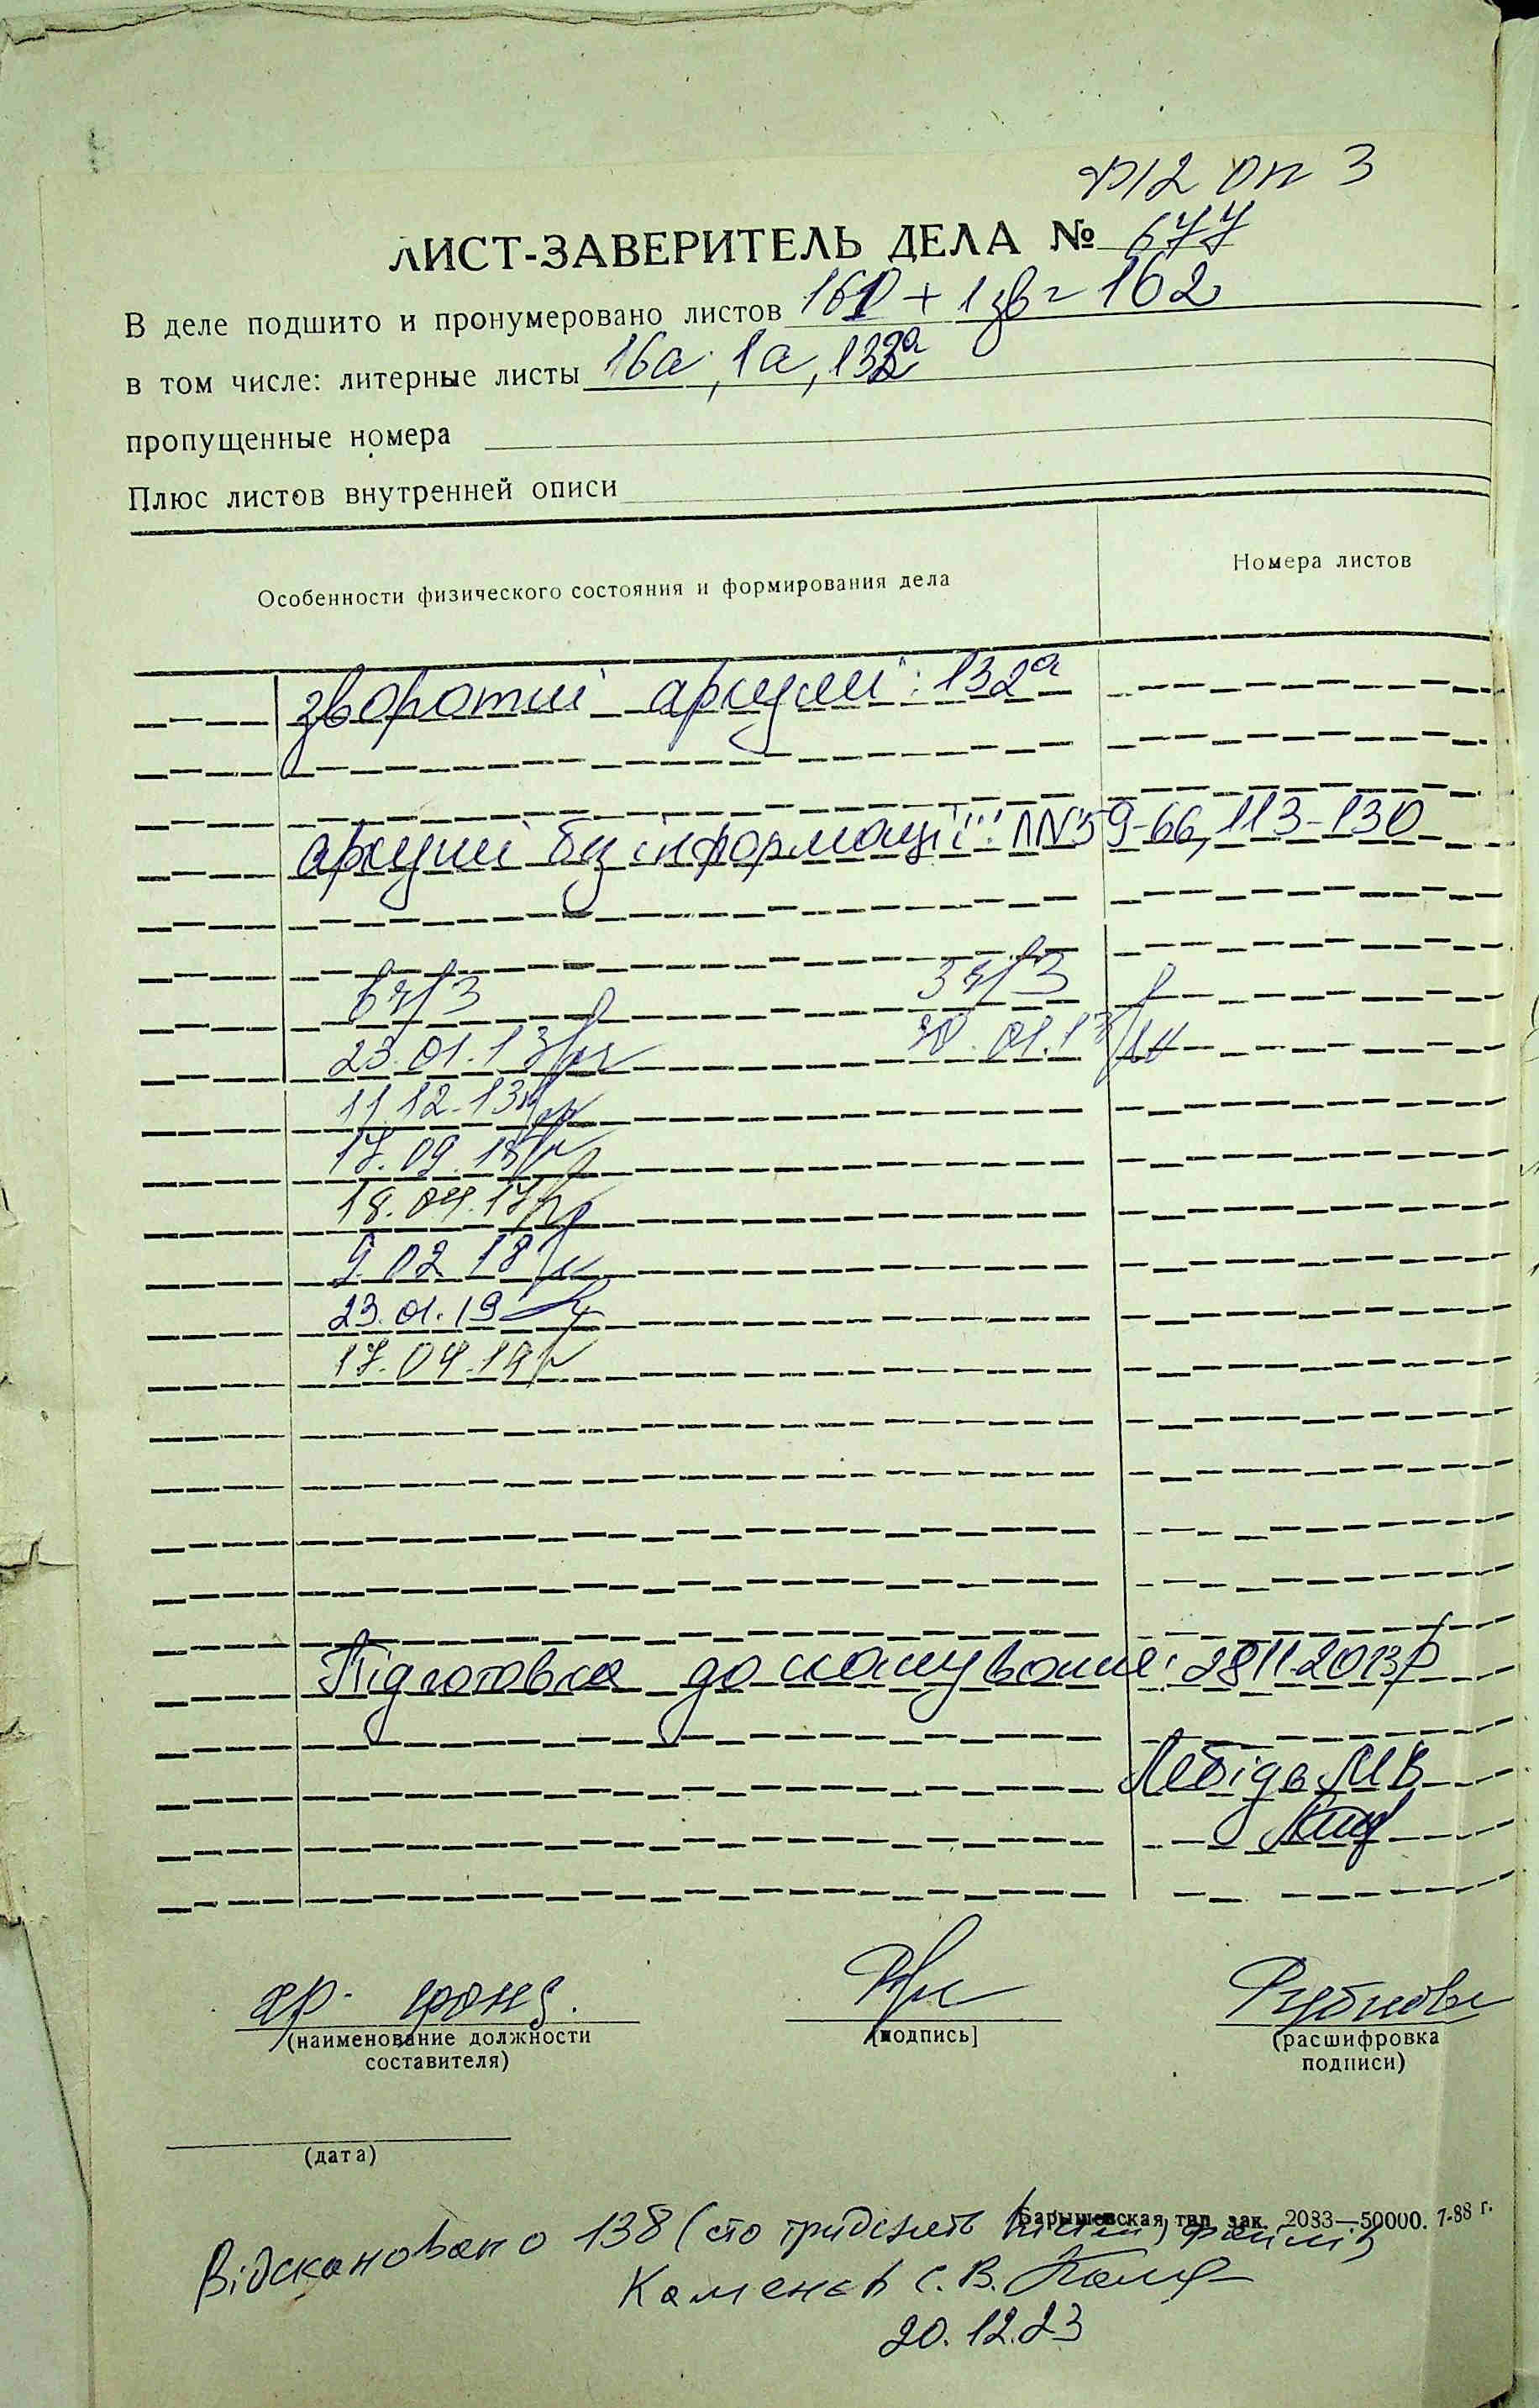 Ф12 оп 3
ЛИСТ-ЗАВЕРИТЕЛЬ ДЕЛА № 677
В деле подшито и пронумеровано листов 161 + 1зв = 162
в том числе: литерные листы 16а, 1а, 132а
пропущенные номера
Плюс листов внутренней описи
Особенности физического состояния и формирования дела
Номера листов
зворотні аркуші: 132а
аркуші без інформації: NN59-66, 113-130
23.01.13
01.13
11.12.13
17.09.15
18.04.17
9.02 18
23.01.19
17.04.19
Підготовка до сканування: 28.11.2013р
Лебідь М В
хр. фонд.
(наименование должности составителя)
[подпись]
(расшифровка подписи)
(дата)
Барышевская тип. зак. 2033—50000. 7-88 г.
Відскановано 138 (сто тридцять вісім) файлів
Каменєв С. В.
20.12.23